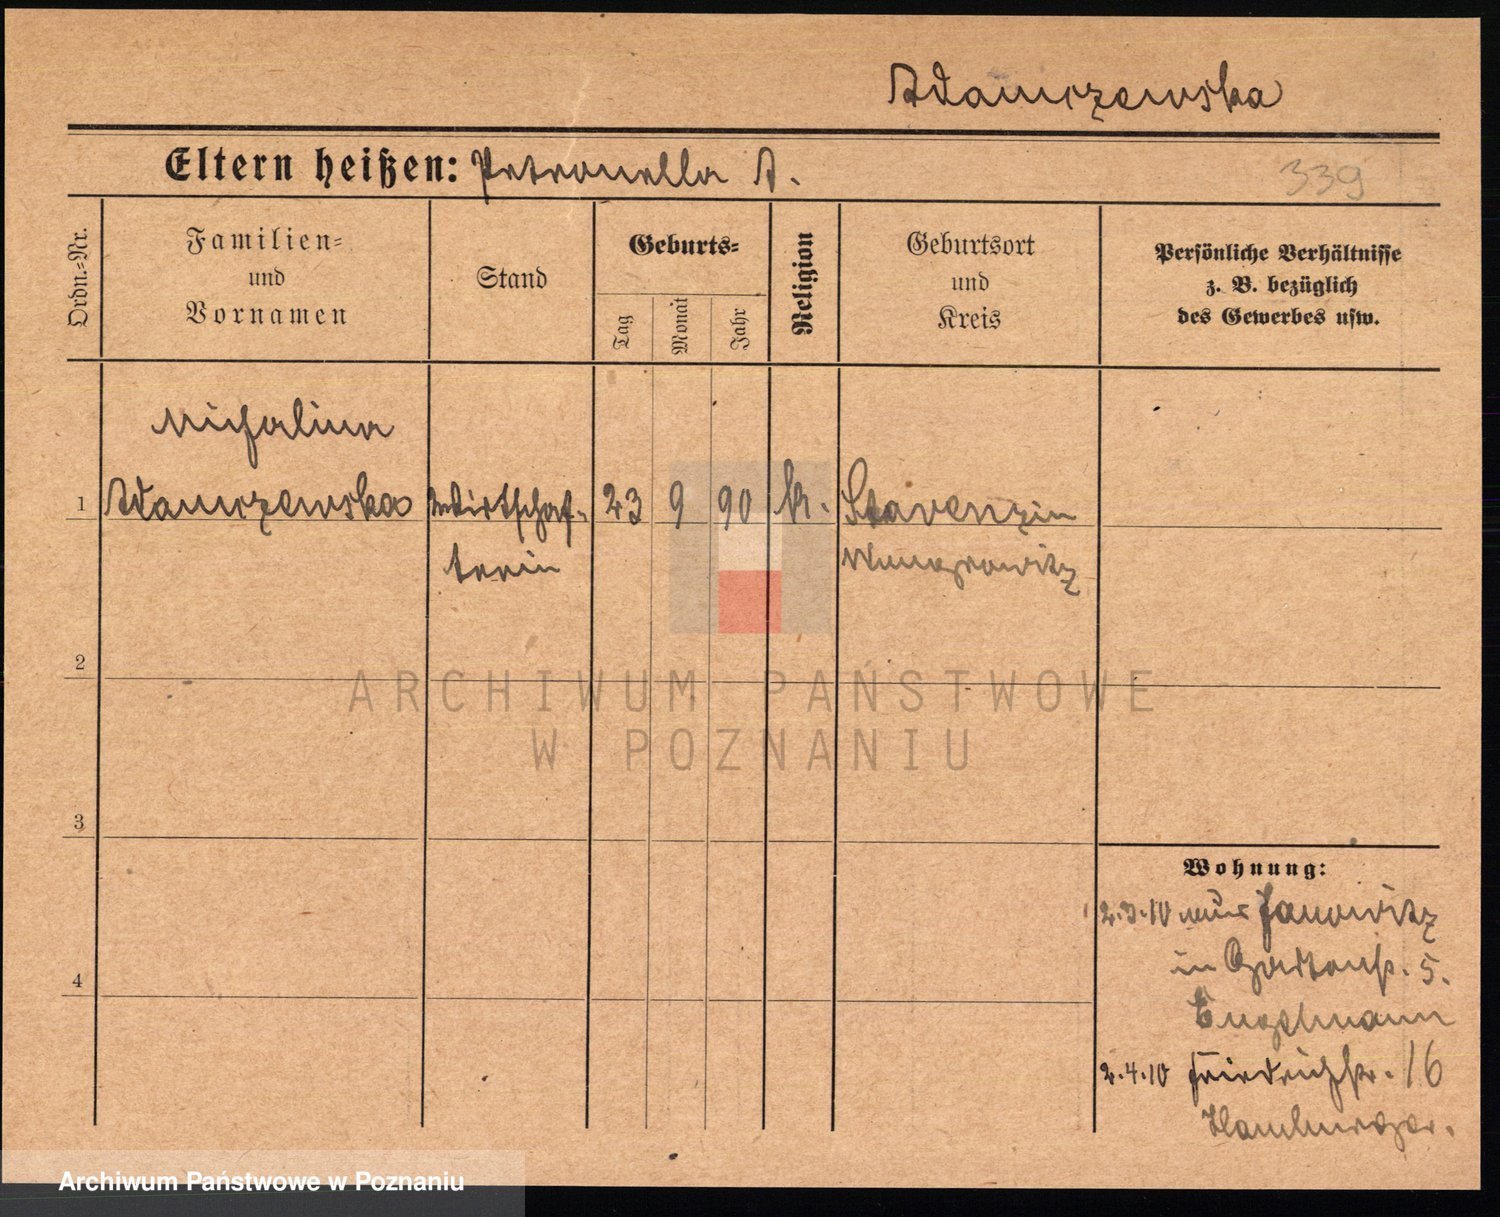 Adamczewska
Eltern heißen: Petronella A.
339
Ordn.=Nr.
Familien=
und
Vornamen
Stand
Geburts=
Tag
Monat
Jahr
Religion
Geburtsort
und
Kreis
Persönliche Verhältnisse
z. B. bezüglich
des Gewerbes usw.
Michalina
1 Adamczewska Wirtschaf- 23 9 90 k. Stavenzin
terin Wongrowitz
2
ARCHIWUM PAŃSTWOWE
W POZNANIU
3
Wohnung:
2.3.10 aus Janowitz
in 5.
4
Engelmann
2.4.10 Friedrichstr. 16
Hamburger.
Archiwum Państwowe w Poznaniu